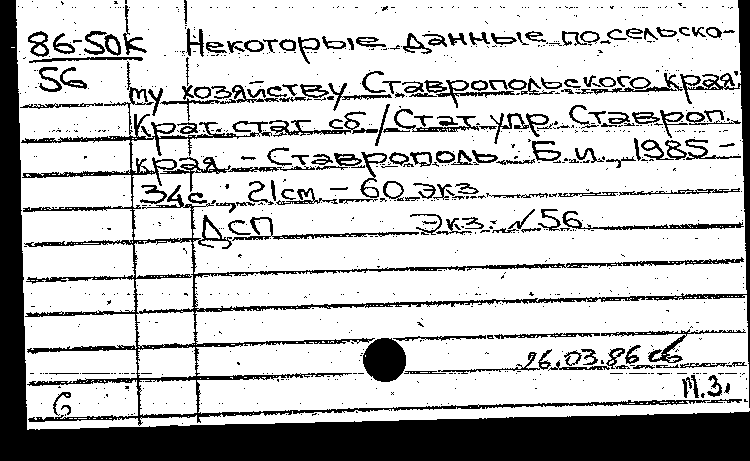 86-50к Некоторые данные по сельско-
56 му хозяйству Ставропольского края:
Крат. стат. сб / Стат. упр. Ставроп.
края. - Ставрополь: Б.и., 1985 -
34с.; 21см. - 60 экз.
ДСП Экз. № 56.
26.03.86 сб
М.З.
6